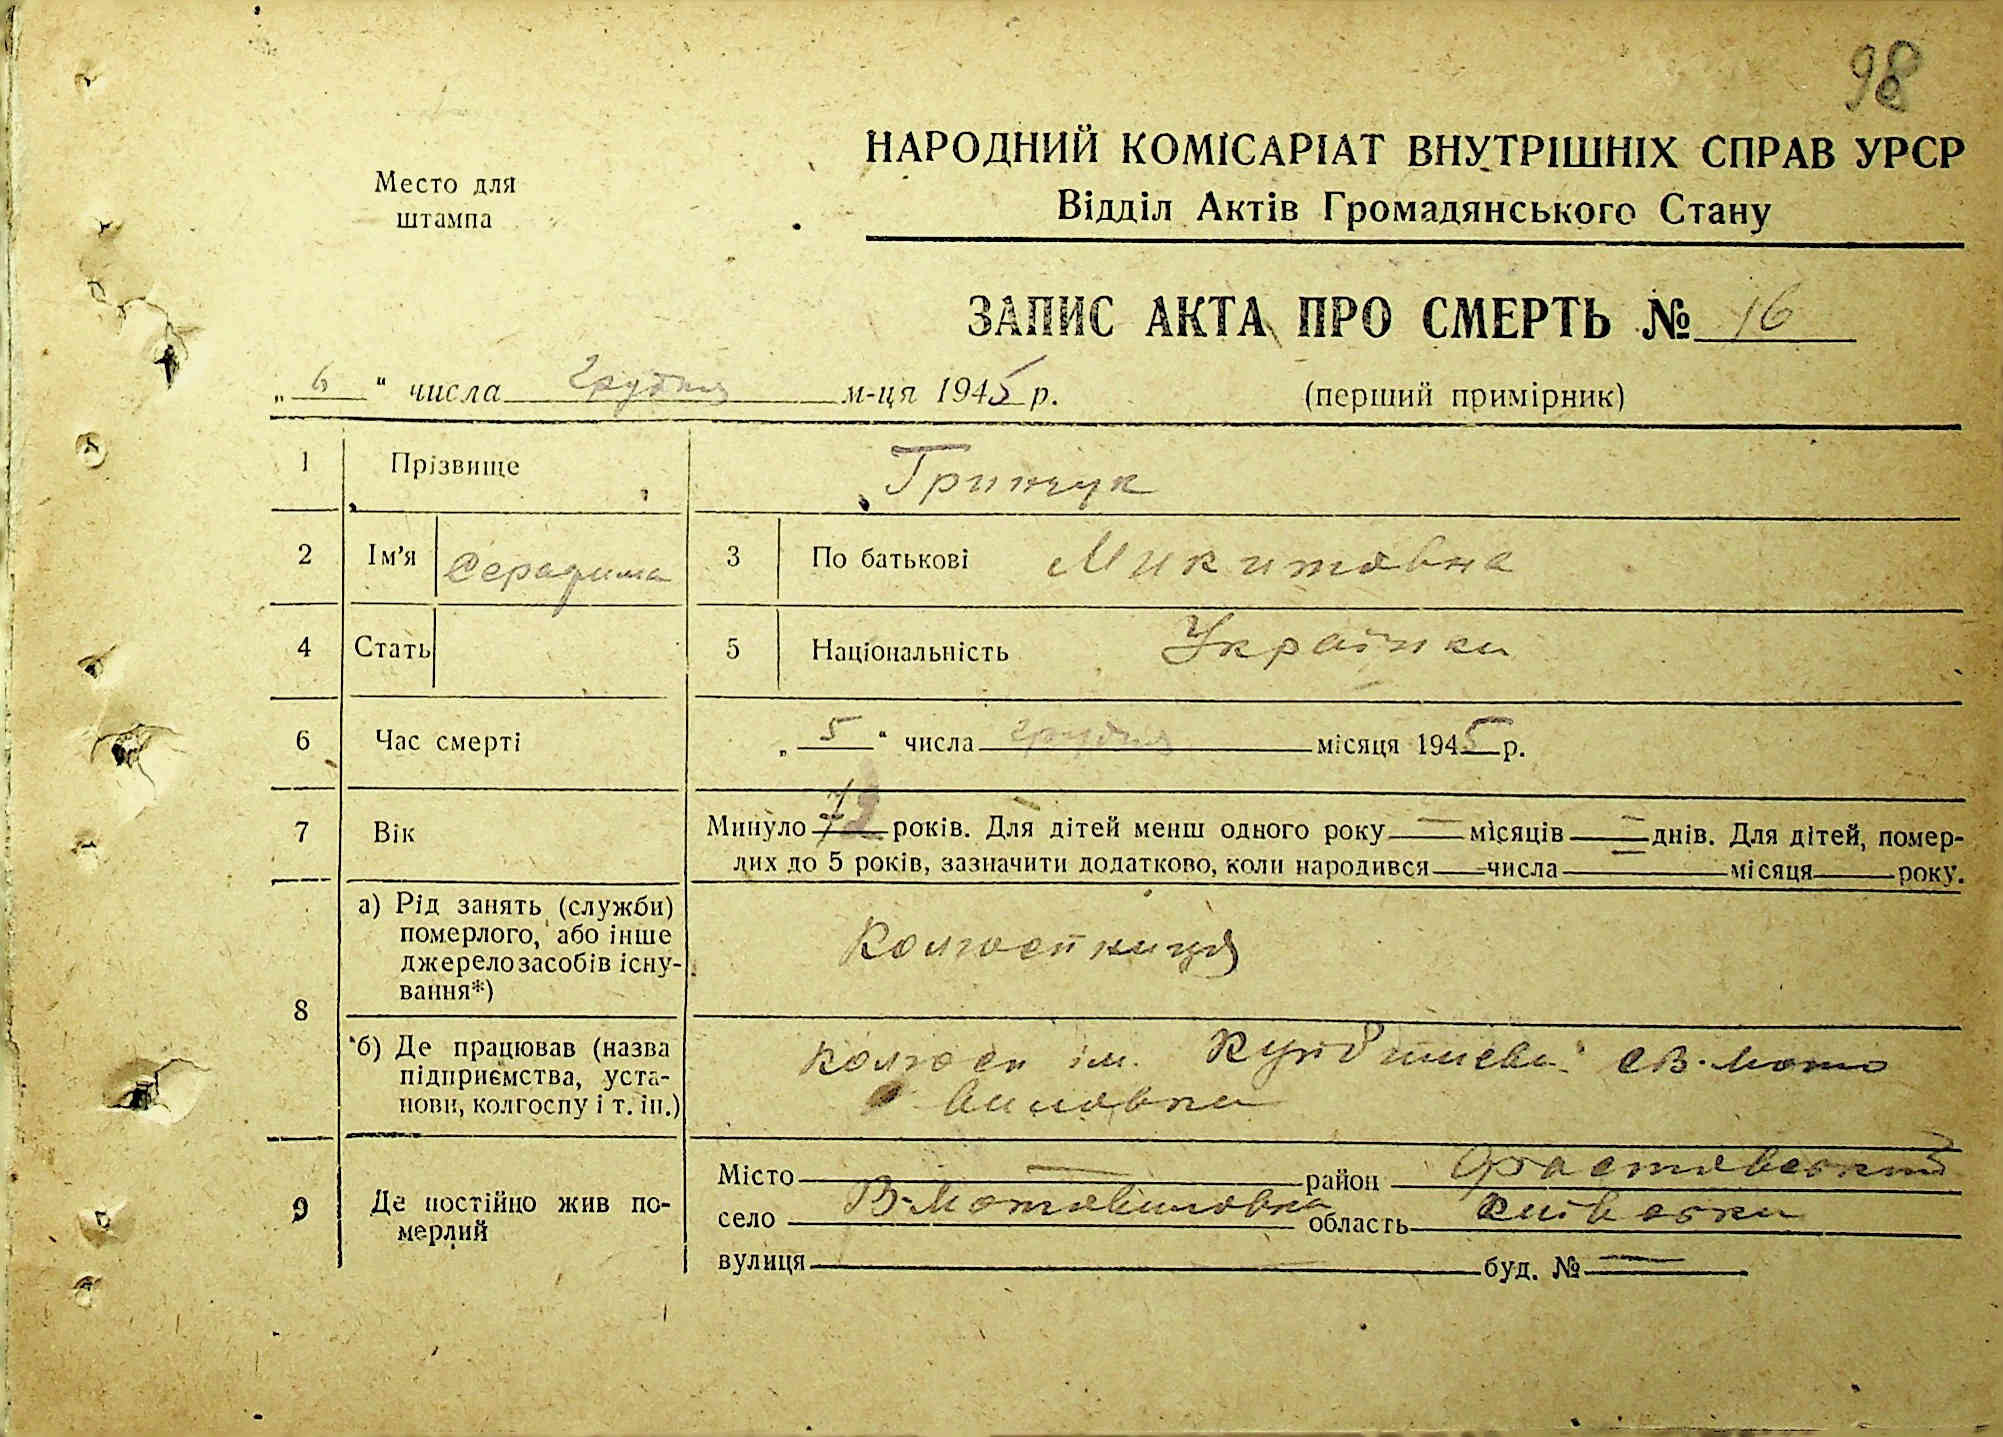 98
НАРОДНИЙ КОМІСАРІАТ ВНУТРІШНІХ СПРАВ УРСР
Место для
штампа
Відділ Актів Громадянського Стану
ЗАПИС АКТА ПРО СМЕРТЬ № 16
„ 6 “ числа грудня м-ця 1945 р. (перший примірник)
1 Прізвище Гринчук
2 Ім'я Серафима 3 По батькові Микитовна
4 Стать 5 Національність Українка
6 Час смерті „ 5 “ числа грудня місяця 1945 р.
7 Вік Минуло 72 років. Для дітей менш одного року — місяців — днів. Для дітей, помер-
лих до 5 років, зазначити додатково, коли народився — числа — місяця — року.
8 а) Рід занять (служби)
померлого, або інше
джерело засобів існу-
вання*)
Колгоспниця
б) Де працював (назва
підприємства, уста-
нови, колгоспу і т. ін.)
колгосп ім. Куйбишева с В-Мото
виловка
9 Де постійно жив по-
мерлий
Місто — район Фастовский
село В-Мотовиловка область Київська
вулиця буд. № —